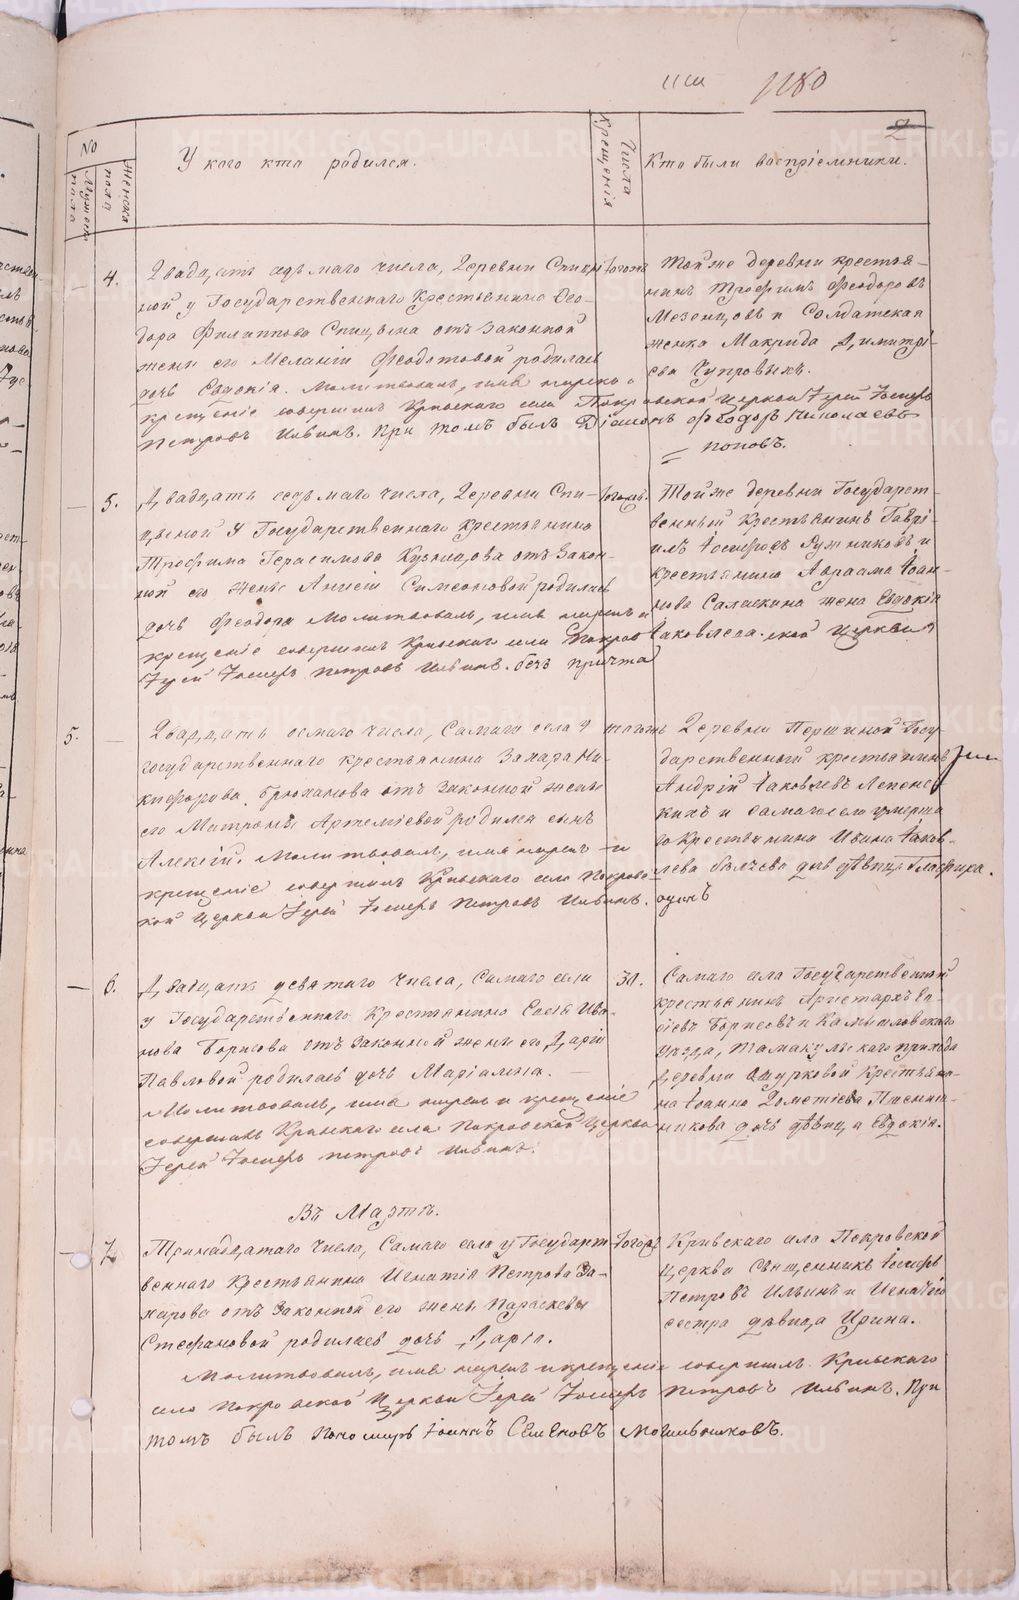 1180
2
№
Мужска пола
Женска пола
У кого кто родился.
Числа Крещенія
Кто были воспріемники.
4.
Двадцать седьмаго числа, Деревни Спици-
ной у Государственнаго Крестьянина Ѳео-
дора Филиппова Спицына отъ законной
жены его Меланіи Феодотовой родилась
дочь Евдокія. Молитвовалъ, имя нарекъ и
крещеніе совершилъ Кривскаго села Покровской церкви Іерей Іосифъ
Петровъ Ильинъ. При томъ былъ Діаконъ Феодоръ Николаевъ
Поповъ.
Тогожъ
Той же деревни крестья-
нинъ Трофимъ Феодоровъ
Мезенцовъ и Солдатская
женка Макрида Димитрі-
ева Чупровыхъ.
5.
Двадцать седьмаго числа, Деревни Спи-
цыной у Государственнаго крестьянина
Трофима Герасимова Кузнецова отъ закон-
ной его жены Анисіи Симеоновой родилась
дочь Феодора Молитвовалъ, имя нарекъ и
крещеніе совершилъ Кривскаго села Покровской церкви
Іерей Іосифъ Петровъ Ильинъ. безъ причта
Тогожъ.
Той же деревни Государст-
венный Крестьянинъ Гаврі-
илъ Іосифовъ Ружниковъ и
крестьянина Авраама Іоан-
нова Саласкина жена Евдокія
Іаковлева.
5.
Двадцать осмаго числа, Самаго села у
государственнаго крестьянина Захара Ни-
кифорова Брюханова отъ законной жены
его Матроны Артеміевой родился сынъ
Алексій. Молитвовалъ, имя нарекъ и
крещеніе совершилъ Кривскаго села Покровс-
кой церкви Іерей Іосифъ Петровъ Ильинъ. одинъ
тогожъ
Деревни Першиной Госу-
дарственной крестьянинъ
Андрій Іаковлевъ
и самаго села умерша-
го Крестьянина Ивана Іаков-
лева дочь дѣвица Глафира.
6.
Двадцать девятаго числа, Самаго села
у Государственнаго Крестьянина Савы Ива-
нова Борисова отъ законной жены его Даріи
Павловой родилась дочь Маріамна.
Молитвовалъ, имя нарекъ и крещеніе
совершилъ Кривскаго села Покровской Церкви
Іерей Іосифъ Петровъ Ильинъ.
31.
Самаго села Государственный
крестьянинъ Аристархъ
Борисовъ и Камышловскаго
уѣзда, Тамакульскаго прихода
Деревни Ошурковой Крестьяни-
на Іоанна Дометіева Пшени-
шникова дочь дѣвица Евдокія.
Въ Мартѣ.
7
Тринадцатаго числа, Самаго села у Государст-
веннаго Крестьянина Игнатія Петрова За-
харова отъ законной его жены Параскевы
Стефановой родилась дочь Дарія.
Молитвовалъ, имя нарекъ и крещеніе совершилъ Кривскаго
села Покровской Церкви Іерей Іосифъ Петровъ Ильинъ. При
томъ былъ Пономарь Іоаннъ Семеновъ Могильниковъ.
Тогожъ
Кривскаго села Покровской
Церкви Священникъ Іосифъ
Петровъ Ильинъ и Игнатія
сестра дѣвица Ирина.
METRIKI.GASO-URAL.RU